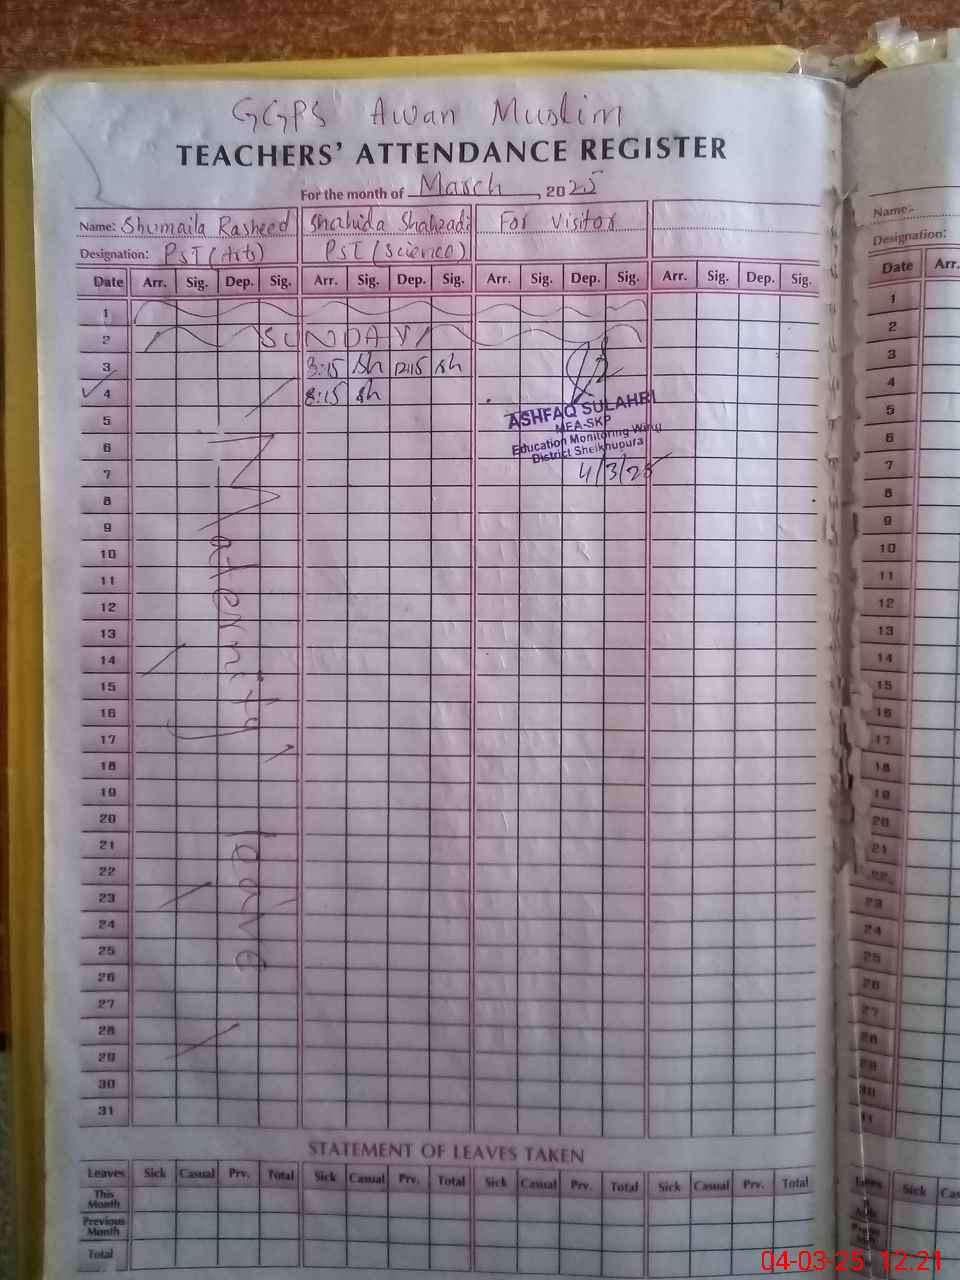 GGPS Awan Muslim
TEACHERS' ATTENDANCE REGISTER
For the month of March, 2025
Name: Shumaila Rasheed Shahida Shahzadi For Visitor
Designation: PST (Arts) PST (Science)
Date Arr. Sig. Dep. Sig. Arr. Sig. Dep. Sig. Arr. Sig. Dep. Sig. Arr. Sig. Dep. Sig.
1
2 SUNDAY
3 8:15 Sh 12:15 Sh
4 8:15 Sh
5
6
7
8
9
10
11
12
13
14
15
16
17
18
19
20
21
22
23
24
25
26
27
28
29
30
31
Maternity leave
ASHFAQ SULAHRI
MEA-SKP
Education Monitoring Wing
District Sheikhupura
4/3/25
STATEMENT OF LEAVES TAKEN
Leaves Sick Casual Prv. Total Sick Casual Prv. Total Sick Casual Prv. Total Sick Casual Prv. Total
This Month
Previous Month
Total
Name:-
Designation:
Date Arr.
1
2
3
4
5
6
7
8
9
10
11
12
13
14
15
16
17
18
19
20
21
22
23
24
25
26
27
28
29
30
Leaves Sick
04-03-25 12:21